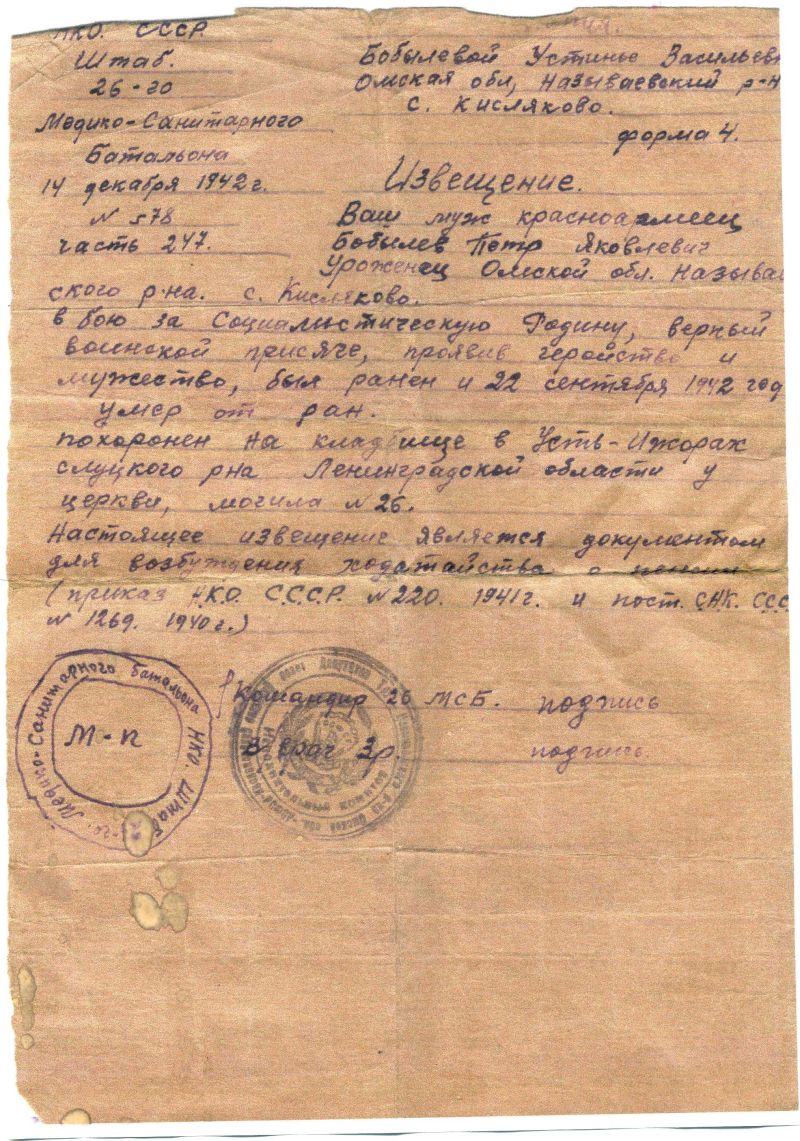 НКО. СССР.
Штаб.
26-го
Медико-Санитарного
Батальона
14 декабря 1942 г.
N 578
часть 247.
Бобылевой Устинье Васильев
Омская обл, Называевский р-н
с. Кисляково.
форма 4.
Извещение.
Ваш муж красноармеец
Бобылев Петр Яковлевич
Уроженец Омской обл. Называ
ского р-на. с. Кисляково.
в бою за Социалистическую Родину, верный
воинской присяге, проявив геройство и
мужество, был ранен и 22 сентября 1942 год
умер от ран.
похоронен на кладбище в Усть-Ижорах
слуцкого р-на Ленинградской области у
церкви, могила N 26.
Настоящее извещение является документом
для возбуждения ходатайства о пенсии
(приказ Н.К.О. С.С.С.Р. N 220. 1941 г. и пост. С.Н.К. С.С.С
N 1269. 1940 г.)
Командир 26 МСБ. подпись
В врач 3р. подпись.
Медико-Санитарного батальона НКО Штаб
М-п
Исполнительный комитет